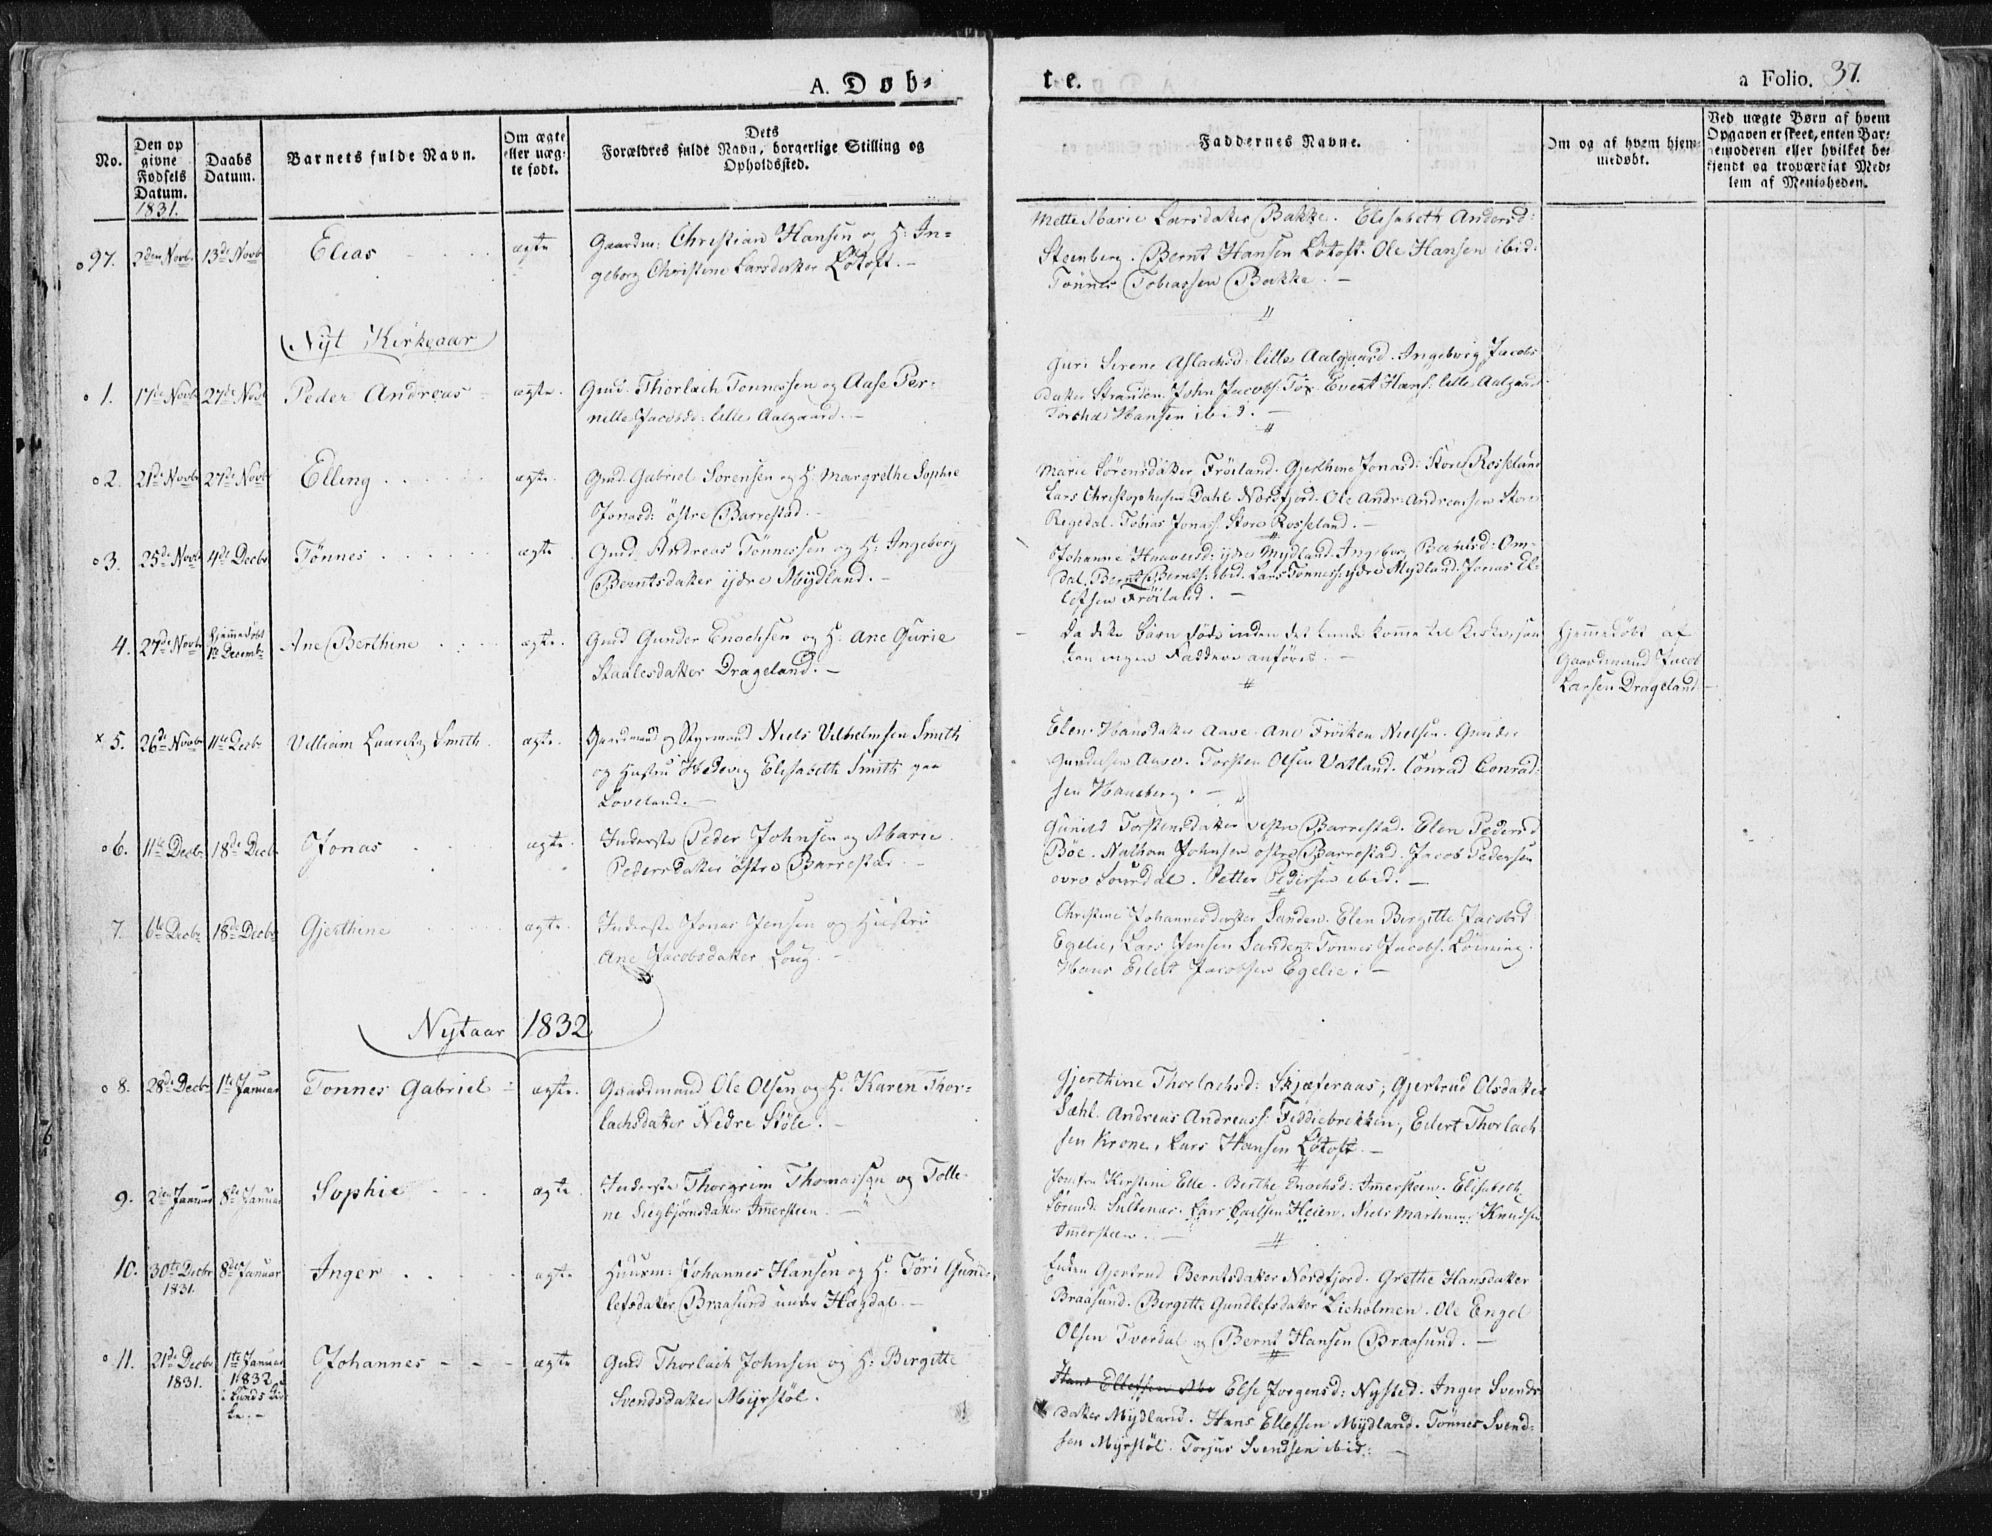 A. Døb-
te.
a Folio. 37.
No.
Den op
givne
Fødsels
Datum.
1831.
Daabs
Datum.
Barnets fulde Navn.
Om ægte
eller uæg-
te født.
Dets
Forældres fulde Navn, borgerlige Stilling og
Opholdssted.
Faddernes Navne.
Om og af hvem hjem-
medøbt.
Ved uægte Børn af hvem
Opgaven er skeet, enten Bar-
nemoderen eller hvilket be-
kjendt og troværdigt Med-
lem af Menigheden.
97. 2den Novb. 13de Novb Elias ægte Gaardm: Christian Hansen og H: In-
geborg Christine Larsdatter Løtoft. -
Mette Marie Larsdatter Bakke. Elisabeth Andersd:
Steenberg. Bernt Hansen Løtoft. Ole Hansen ibid:
Tønnes Tobiassen Bakke. -
Nyt Kirkeaar
1. 17de Novb 27de Novb Peder Andreas ægte. Gmd. Thorlach Tonnessen og Aase Per-
nille Jacobsd: lille Aalgaard. -
Guri Serene Aslachsd: lille Aalgaard. Ingeborg Jacobs
datter Stranden. John Jacobs: Evert Hans: lille Aalgaard
Hansen ibid. -
2. 21de Novb 27de Novb Elling ægte. Gmd. Gabriel Sørensen og H: Margrethe Sophie
Jonasd: østre Barrestad.
Marie Sørensdatter Frøiland. Gjerthine Jonasd: Store Rosseland
Lars Christophersen Dahl Nordfjord. Ole Andr: Andreassen Store
Regedal. Tobias Jonas: Store Rosseland. -
3. 25de Novb 4de Decbr Tønnes ægte Gmd. Andreas Tønnessen og H: Ingeborg
Berntsdatter ijdre Mijdland. -
Johanne Haaversd: ijdre Mydland. Ingeborg Berntsd: Om-
dal. Bernt Bernts: ibid. Lars Tønness: ijdre Mydland. Jonas El-
lefsen Frøiland. -
4. 27de Novb Hjemmedøbt
1te Decemb Ane Berthine ægte. Gmd Gunder Enochsen og H: Ane Gurie
Staalesdatter Drageland. -
Da dette Barn døde inden det kunde komme til Kirken saa
kan ingen Faddere anføres. -
Hjemmedøbt af
Gaardmand Jacob
Larsen Drageland
5. 26de Novb 11te Decb Villiam Smith ægte. Gaardmand og Styrmand Niels Vilhelmsen Smith
og Hustru Hedevig Elisabeth Smith paa
Loveland. -
Elen Hansdatter Aase. Ane Frøiken Nielsen. Gunder
Gundersen Aase. Torsten Olsen Vatland. Conrad Conrad-
sen Haneberg. -
6. 11te Decb. 18de Decb. Jonas ægte. Inderste Peder Johnsen og Marie
Pedersdatter østre Barrestad. -
Gunild Torstensdatter vestre Barrestad. Elen Pedersd
Bøe. Nathan Johnsen østre Barrestad. Jacob Pedersen
Petter Pedersen ibid. -
7. 6te Decbr 18de Decbr Gjerthine ægte. Inderste Jonas Jensen og Hustru
Ane Jacobsdatter Loug. -
Christine Johannesdatter Sanden. Elen Birgitte Jacobsd
Egelie, Lars Jensen Sanden. Tønnes Jacobs. Løining.
Hans Eilert Jacobsen Egelie. -
Nytaar 1832.
8. 28de Decbr 1te Januar Tonnes Gabriel ægte. Gaardmand Ole Olsen og H: Karen Thor-
lachsdatter Nedre Støle. -
Gjerthine Thorlachsd: Skjæferaas; Gjertrud Olsdatter
Sæhl. Andreas Andreass: Fiddiebrekken; Eilert Thorlach-
sen Krone. Lars Hansen Løtoft. -
9. 2den Januar 8de Januar Sophie ægte Inderste Thorgrim Thomassen og Tolle-
ne Siegbjørnsdatter Immersteen. -
Jomfru Kirstine Elle. Berthe Enochsd: Immersteen. Elisabeth
Sørensd: Sultenas. Lars Carlsen Heien. Niels Martinius Knudsen
Immersteen. -
10. 30te Decbr
1831. 8de Januar Inger ægte Huusm: Johannes Hansen og H: Tøri Gund-
lefsdatter Braasund under Hægdal. -
Gjertrud Berntsdatter Nordfjord. Grethe Hansdatter
Braasund. Birgitte Gundlefsdatter Lieholmen. Ole Engel
Olsen Tverdal og Bernt Hansen Braasund. -
11. 21de Decbr
1831. 1te Januar
1832
i Lunds Kir-
ke. - Johannes ægte Gmd Thorlach Johnsen og H: Birgitte
Svendsdatter Mijrstøl.
Hans Ellefsen Else Jorgensd: Nysted. Inger Svends
datter Mydland. Hans Ellefsen Mijdland. Tønnes Svend-
sen Mijrstøl. Torjus Svendsen ibid: -